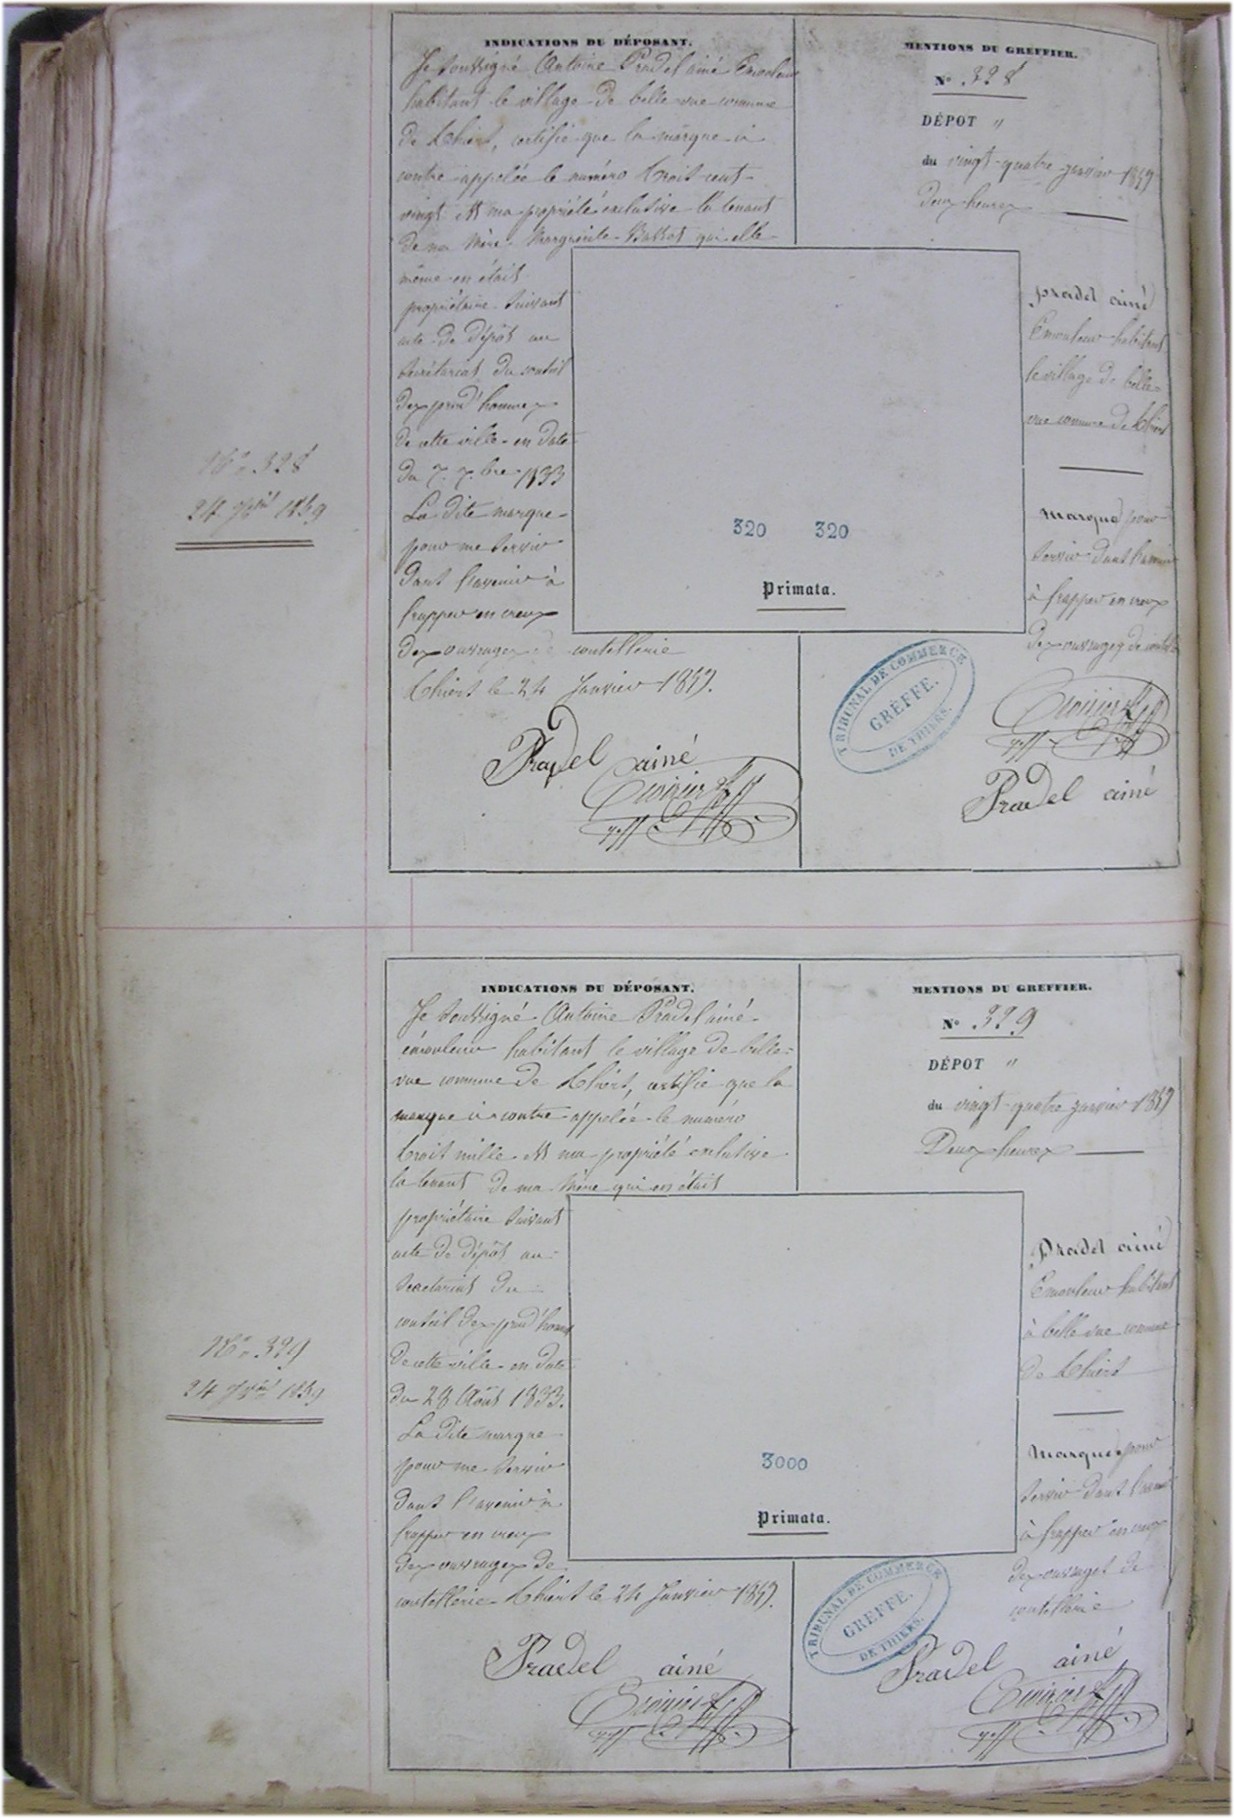 INDICATIONS DU DÉPOSANT.
Je soussigné Antoine Pradel ainé Emouleur
habitant le village de belle vue commune
de Thiers, certifie que la marque ci
contre appelée le numéro trois cent
vingt est ma propriété exclusive la tenant
de ma Mère Marguerite qui elle
même en était
propriétaire suivant
acte de dépôt au
Secrétariat du conseil
des prud'hommes
de cette ville en date
du 7. 7.bre 1833
La dite marque
pour me servir
dans l'avenir à
frapper en creux
des ouvrages de coutellerie
Thiers le 24 Janvier 1859.
Pradel ainé
MENTIONS DU GREFFIER.
N° 328
DÉPOT "
du vingt-quatre janvier 1859
deux heures
pradel ainé
Emouleur habitant
le village de belle-
vue commune de Thiers
marque pour
servir dans l'avenir
à frapper en creux
des ouvrages de
320 320
Primata.
TRIBUNAL DE COMMERCE
GRÈFFE.
DE THIERS.
Pradel ainé
N° 328
24 1859
INDICATIONS DU DÉPOSANT.
Je soussigné Antoine Pradel ainé
émouleur habitant le village de belle-
vue commune de Thiers, certifie que la
marque ci contre appelée le numéro
trois mille est ma propriété exclusive
la tenant de ma Mère qui en était
propriétaire suivant
acte de dépôt au
Secretariat du
conseil des prud'hommes
de cette ville en date
du 28 Août 1833.
La dite marque
pour me servir
dans l'avenir à
frapper en creux
des ouvrages de
coutellerie Thiers le 24 Janvier 1859.
Pradel ainé
MENTIONS DU GREFFIER.
N° 329
DÉPOT "
du vingt-quatre janvier 1859
Deux heures
Pradel ainé
Emouleur habitant
à belle vue commune
de Thiers
marque pour
servir dans l'avenir
à frapper en creux
des ouvrages de
coutellerie
3000
Primata.
TRIBUNAL DE COMMERCE
GREFFE.
DE THIERS.
Pradel ainé
N° 329
24 1859